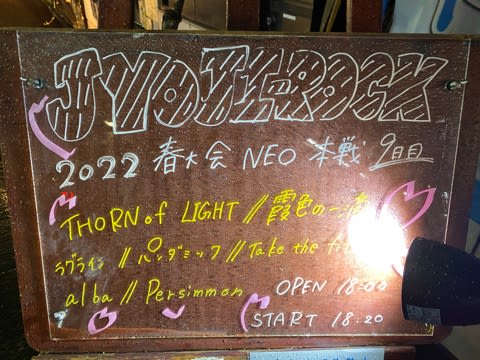 JYOJI-ROCK
2022 春大会 NEO 本戦 2日目
THORN of LIGHT // 霞色の一滴
ラブライン // パンダミック // Take the
alba // Persimmon OPEN 18:00
START 18:20